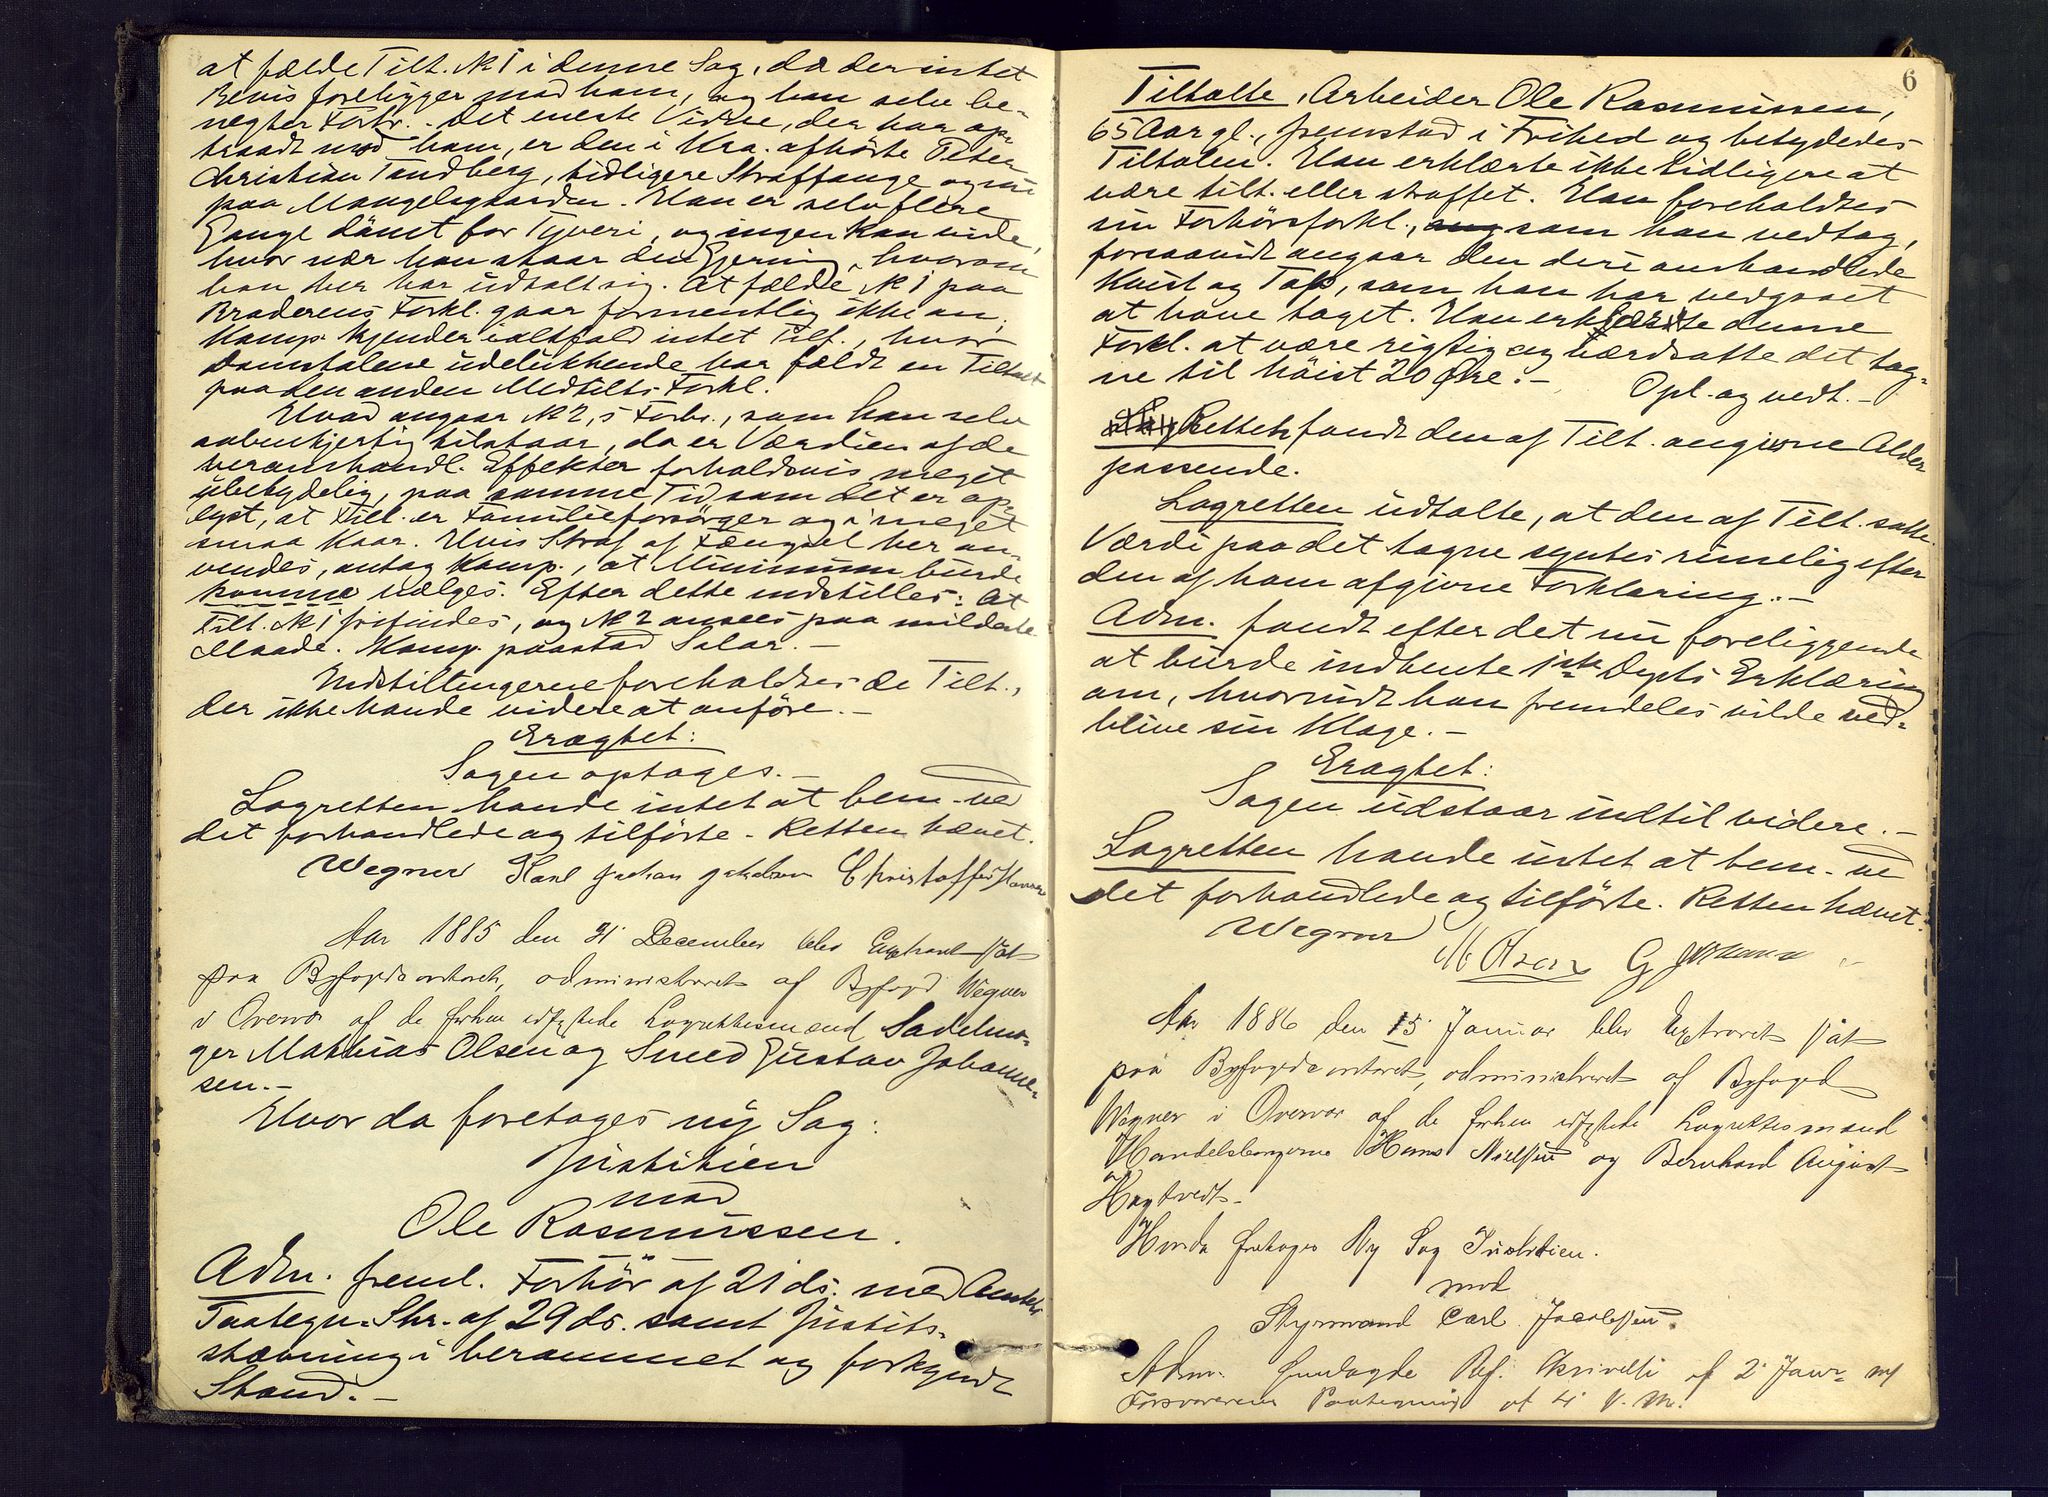 at fælde Tilt. No 1 i denne Sag, da der intet
Bevis foreligger mod ham, og han selv be-
negter Forbr. Det eneste Vidne, der har op-
traadt mod ham, er den i Kra. afhørte Peter
Christian Tandberg, tidligere Straffange og nu
paa Mangelsgaarden. Han er selv flere
Gange dømt for Tyveri, og ingen kan vide,
hvor nær han staar den Gjerning, hvorom
han her har udtalt sig. At fælde No 1 paa
Broderens Forkl. gaar formentlig ikke an;
Komp. kjender ialtfald intet Tilf., hvor
Domstolene udelukkende har fældt en Tiltalt
paa den anden Medtilts Forkl.
Hvad angaar No 2,s Forbr., som han selv
aabenhjertig tilstaar, da er Værdien af de
heromhandl. Effekter forholdsvis meget
ubetydelig, paa samme Tid som det er op-
lyst, at Tilt. er Familieforsørger og i meget
smaa Kaar. Hvis Straf af Fængsel her an-
vendes, antog Komp., at Minimum burde
komme vælges. Efter dette indstilles: At
Tilt. No 1 frifindes, og No 2 ansees paa mildeste
Maade. Komp. paastod Salær. –
Indstillingerne foreholdtes de Tilt.,
der ikke havde videre at anføre. –
Eragtet:
Sagen optages. –
Lagretten havde intet at bem. ved
det forhandlede og tilførte. Retten hævet.
Wegner Karl Johan Jakobsen Christoffer Hansen
Aar 1885 den 31 December blev Extraret sat
paa Byfogedcontoret, administreret af Byfoged Wegner
i Overvær af de forhen edfæstede Lagrettesmænd Sadelma-
ger Mathias Olsen og Smed Gustav Johanne-
sen. –
Hvor da foretages ny Sag:
Justitien
mod
Ole Rasmussen.
Adm. freml. Forhør af 21 ds. med Amtets
Paategn. Skr. af 29 ds. samt Justits-
stævning i berammet og forkyndt
Stand. –
6
Tiltalte, Arbeider Ole Rasmussen,
65 Aar gl., fremstod i Frihed og betydedes
Tiltalen. Han erklærte ikke tidligere at
være tilt. eller straffet. Han foreholdtes
sin Forhørsforkl., som han vedtog,
forsaavidt angaar den deri omhandlede
Kvist og Top, som han har vedgaaet
at have taget. Han erklærte denne
Forkl. at være rigtig og værdsatte det tag-
ne til høist 20 Øre. –
Opl. og vedt. –
Retten fandt den af Tilt. angivne Alder
passende.
Lagretten udtalte, at den af Tilt. satte
Værdi paa det tagne syntes rimelig efter
den af ham afgivne Forklaring. –
Adm. fandt efter det nu foreliggende
at burde indhente 1ste Depts Erklæring
om, hvorvidt han fremdeles vilde ved-
blive sin Klage. –
Eragtet:
Sagen udstaar indtil videre. –
Lagretten havde intet at bem. ve
det forhandlede og tilførte. Retten hævet.
Wegner
M Olsen G Johannes
Aar 1886 den 15 Januar blev Extraret sat
paa Byfogedcontoret, administreret af Byfoged
Wegner i Overvær af de forhen edfæstede Lagrettesmænd
Handelsborgerne Hans Nielsen og Bernhard August
Hagtvedt. –
Hvorda foretoges Ny Sag Justitien.
mod
Styrmand Carl Jacobsen.
Adm. fremlagde Skrivelse af 2 Janr m/
Forsvarerens Paategning af 4 s. M.